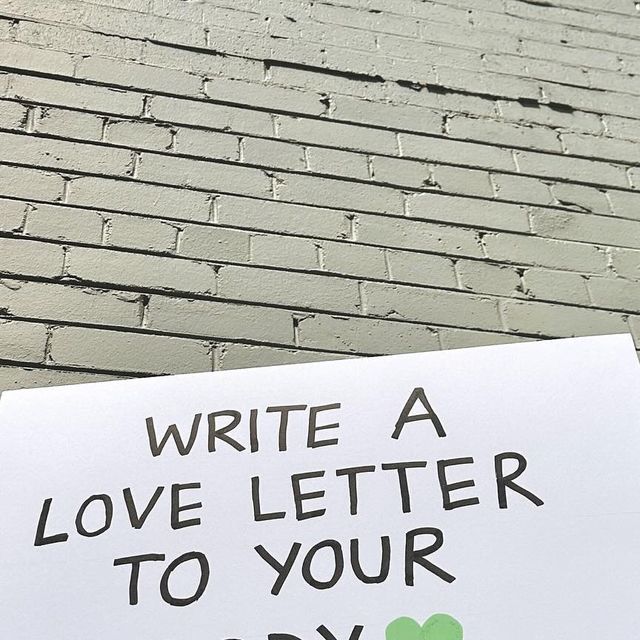 WRITE A
LOVE LETTER
TO YOUR